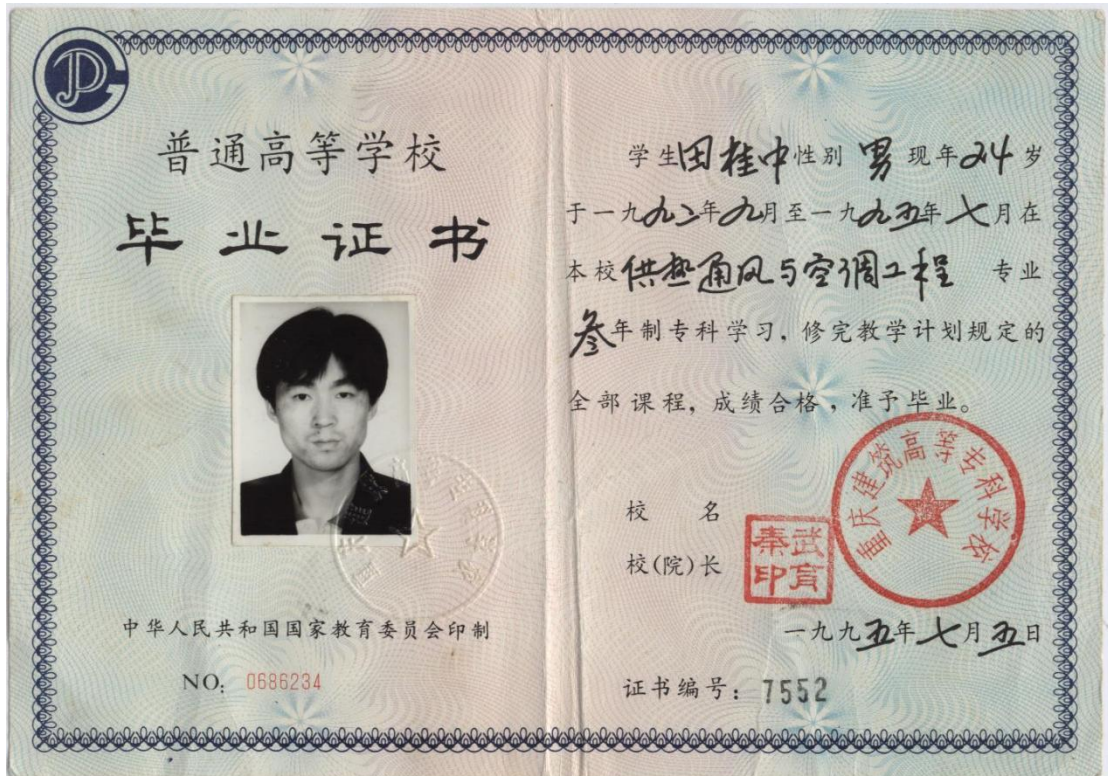 普通高等学校
毕业证书
中华人民共和国国家教育委员会印制
NO: 0686234
学生田桂中性别 男 现年24岁
于一九九二年九月至一九九五年七月在
本校供热通风与空调工程 专业
叁年制专科学习，修完教学计划规定的
全部课程，成绩合格，准予毕业。
校 名
重庆建筑高等专科学校
校(院)长
武育秦印
一九九五年七月五日
证书编号: 7552